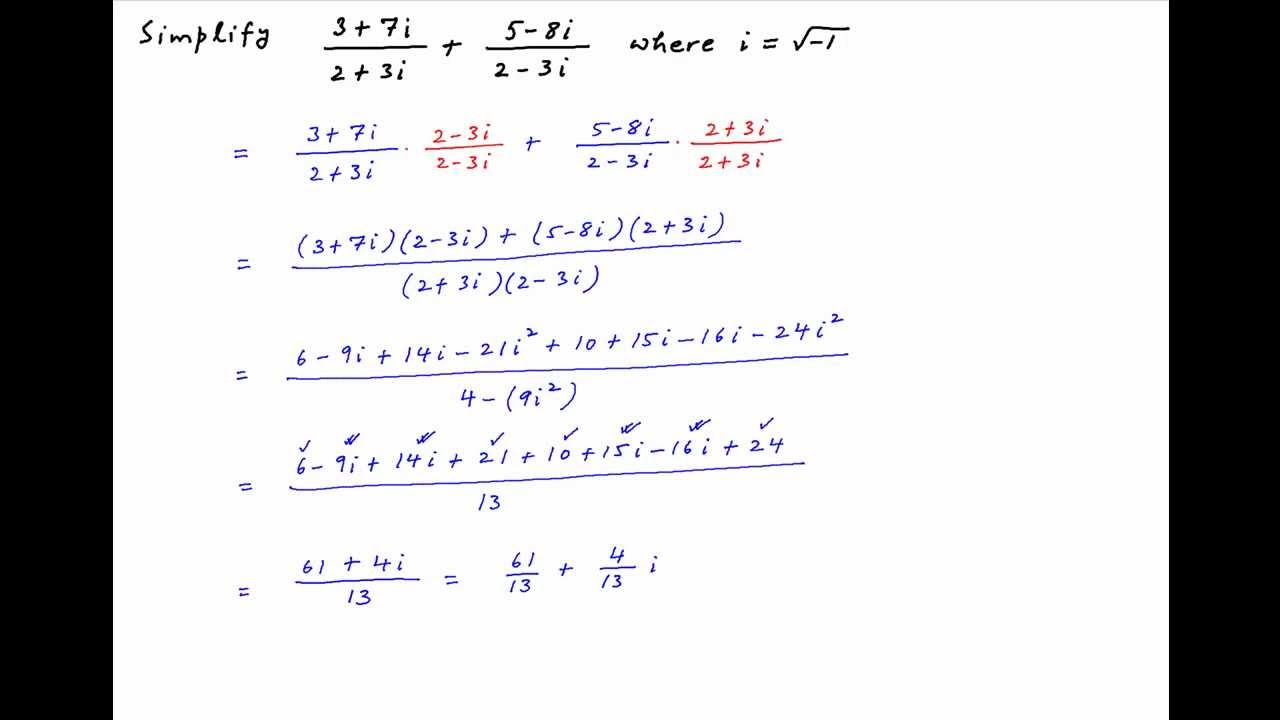 Simplify (3+7i)/(2+3i) + (5-8i)/(2-3i) where i = √-1
= (3+7i)/(2+3i) · (2-3i)/(2-3i) + (5-8i)/(2-3i) · (2+3i)/(2+3i)
= ((3+7i)(2-3i) + (5-8i)(2+3i))/((2+3i)(2-3i))
= (6-9i+14i-21i²+10+15i-16i-24i²)/(4-(9i²))
= (6-9i+14i+21+10+15i-16i+24)/13
= (61+4i)/13 = 61/13 + 4/13 i